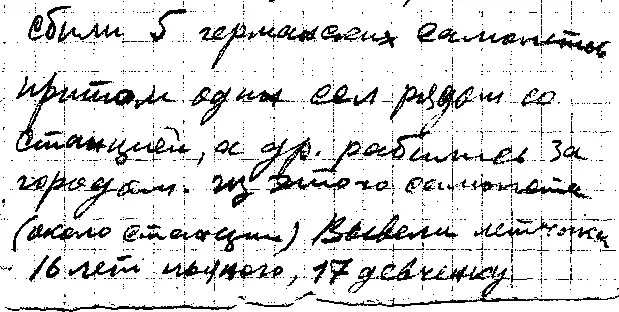 сбили 5 германских самолетов
притом один сел рядом со
станцией, а др. рабились за
городом. из этого самолета
(около станции) вывели летчика
16 лет пьяного, 17 девченку